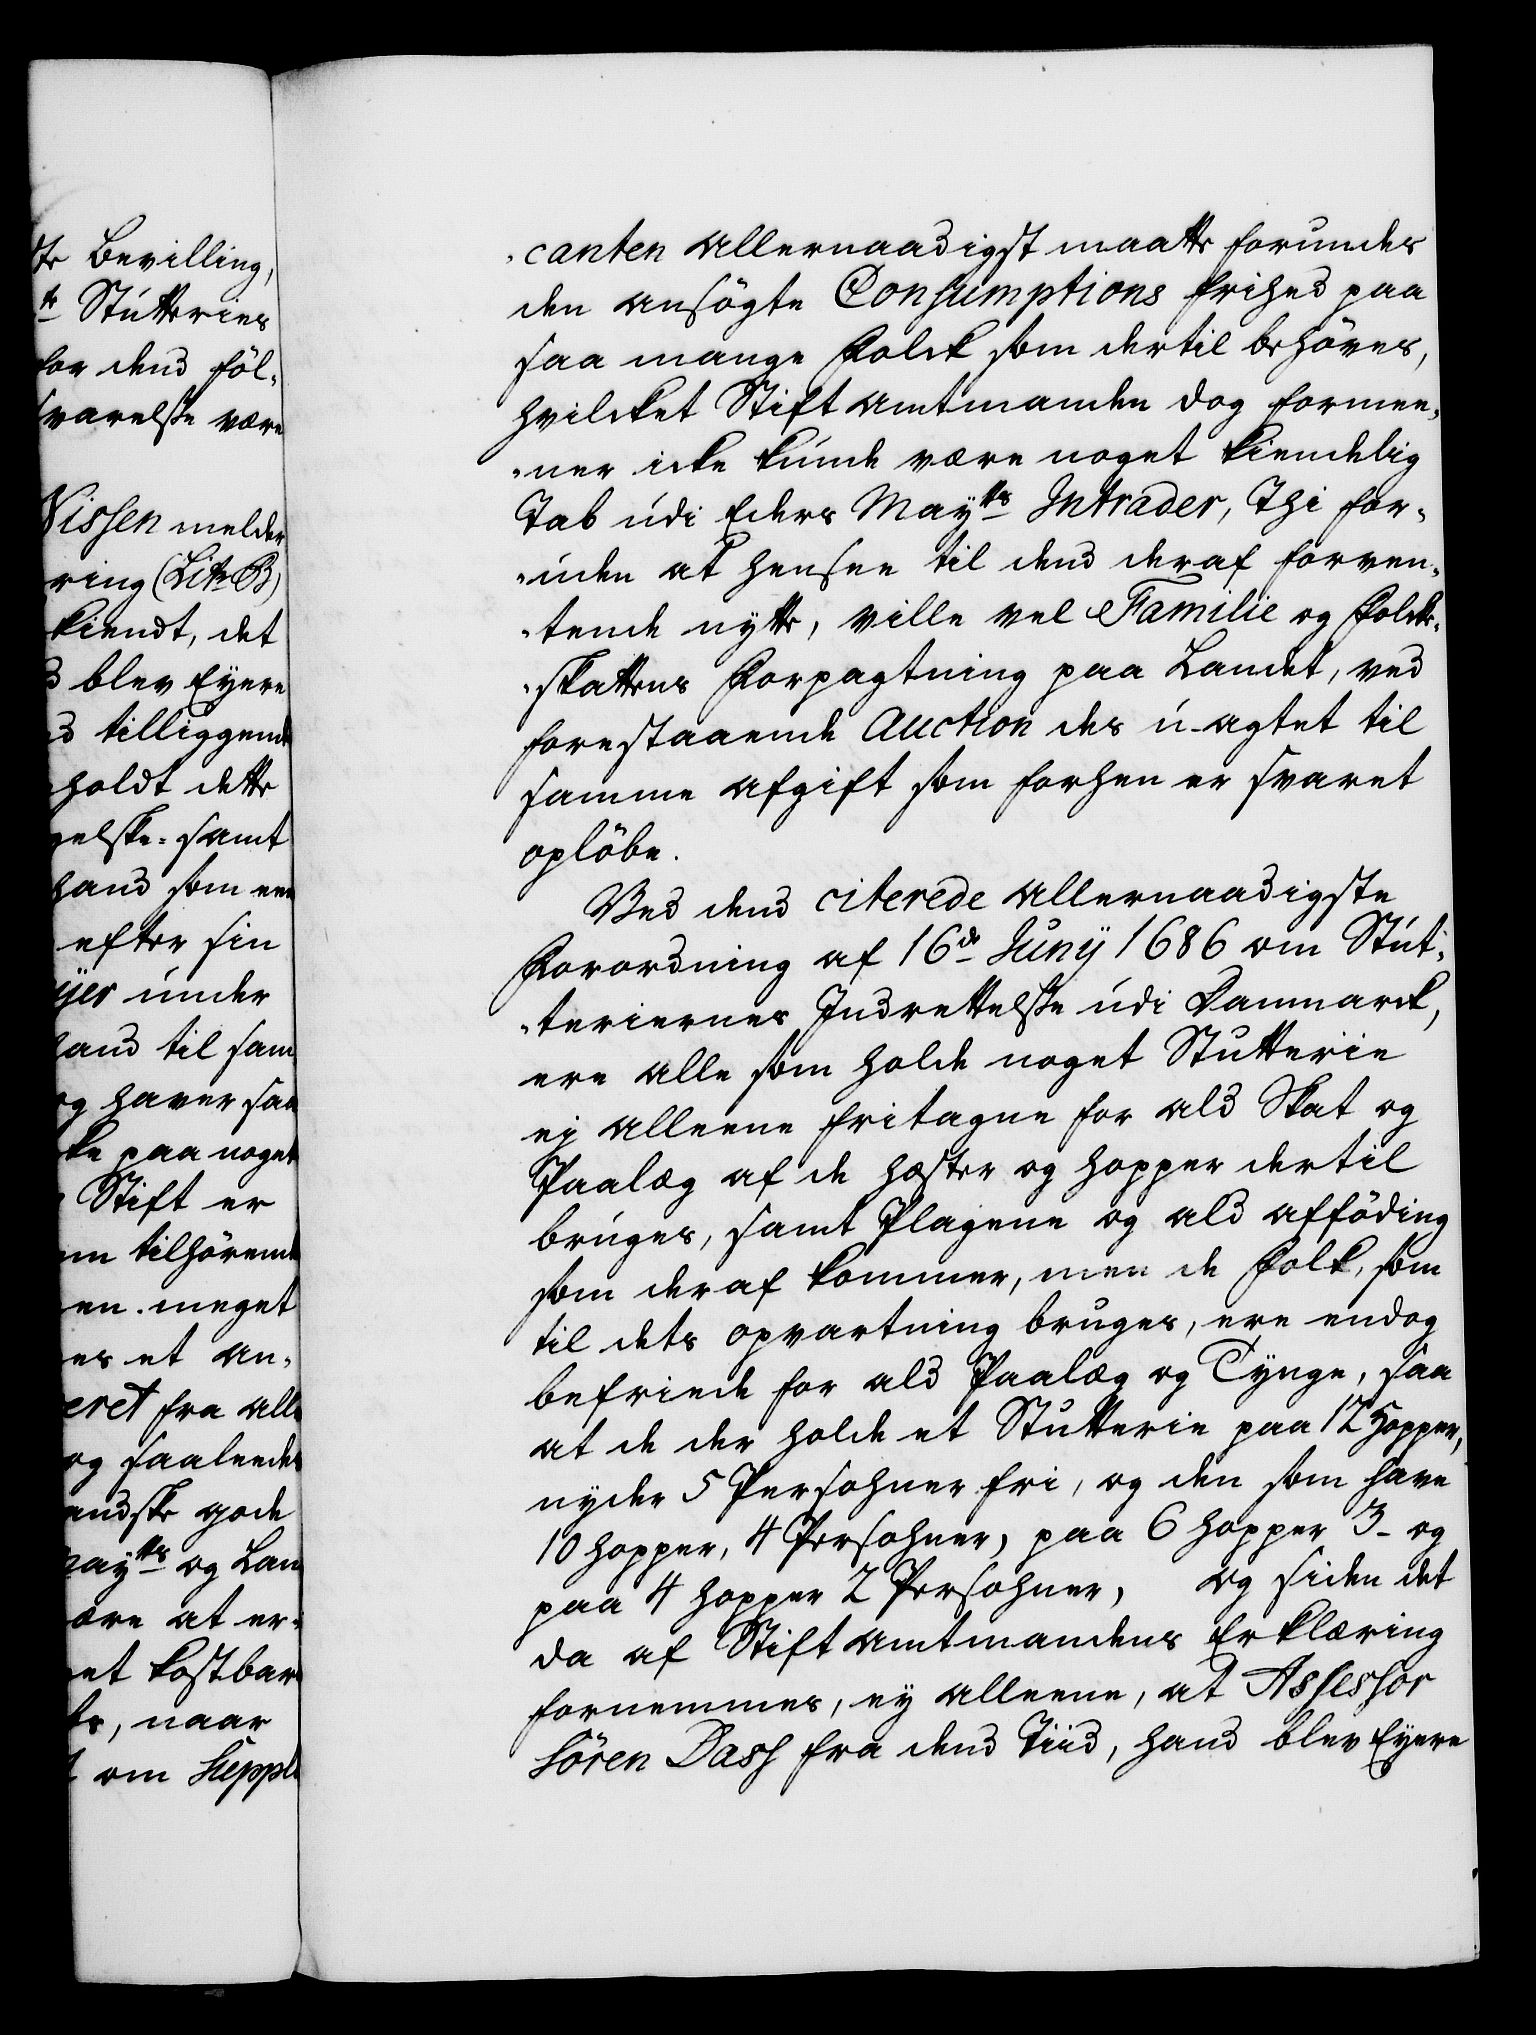 te Bevilling,
te Stutteries
for dend föl-
svarelsse være
Nissen melder
ring (Litr B)
kiendt, det
d blev Eyere
d tilliggende
holdt dette
gelske- samt
hand som een
efter sin
yer under
hand til sam
og haver saa
ke paa noget
Stift er
em tilhörende
en meget
es et an-
eret fra alle
og saaleedes
andske gode
Mayts og Lan
ære at er-
et kostbar
te, naar
om Suppli
-canten allernaadigst maatte forundes
den ansögte Consumptions frihed paa
saa mange Folck som dertil behöves,
hvilcket Stift amtmanden dog formee-
-ner icke kunde være noget kiendelig
Tab udi Eders Mayts Intrader, Thi for-
-uden at hensee til dend deraf forven-
-tende nytte, ville vel Familie og Folcke-
-skattens Forpagtning paa Landet, ved
forestaaende Auction des u-agtet til
samme afgift som forhen er svaret
oplöbe.
Ved dend citerede allernaadigste
Forordning af 16de Juny 1686 om Stut-
-teriernes Indrettelsse udi Danmarck,
ere alle som holde noget Stutterie
ej alleene fritagne for ald Skat og
Paalæg af de hæster og hopper dertil
bruges, samt Plagene og ald afföding
som deraf kommer, men de Folk, som
til dets opvartning bruges, ere endog
befriede for ald Paalæg og Tynge, saa
at de der holde et Stutterie paa 12 Hopper,
nyder 5 Persohner fri, og den som have
10 hopper, 4 Persohner, paa 6 hopper 3- og
paa 4 hopper 2 Persohner, og siden det
da af Stift amtmandens Erklæring
fornemmes, ey alleene, at Assessor
Sören Dass fra dend Tiid, hand blev Eyere